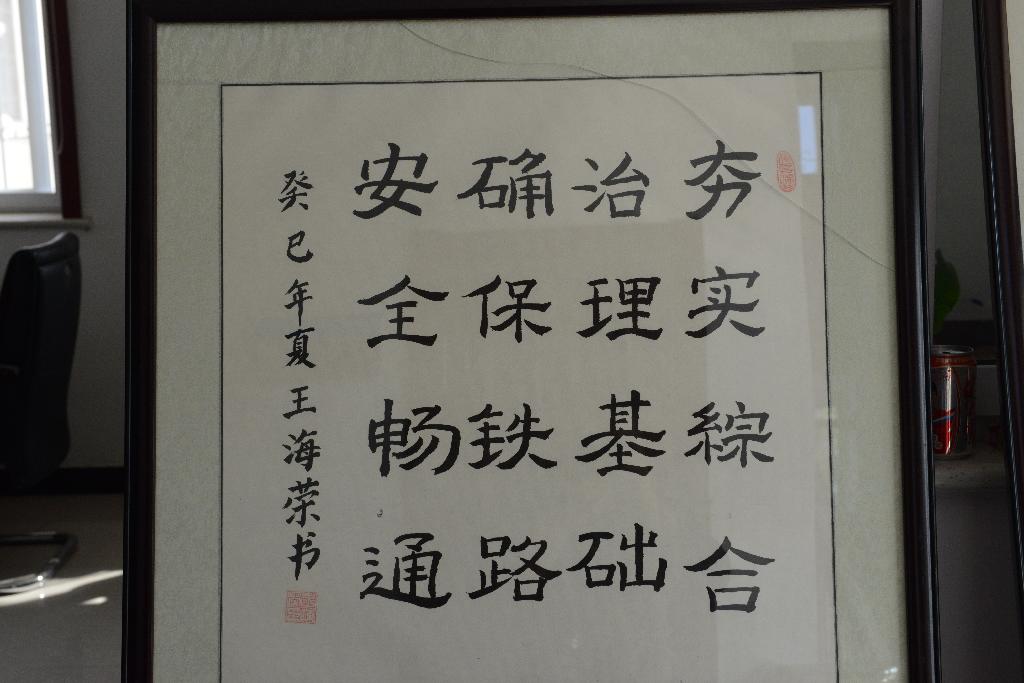 夯实綜合
治理基础
确保铁路
安全畅通
癸巳年夏王海荣书